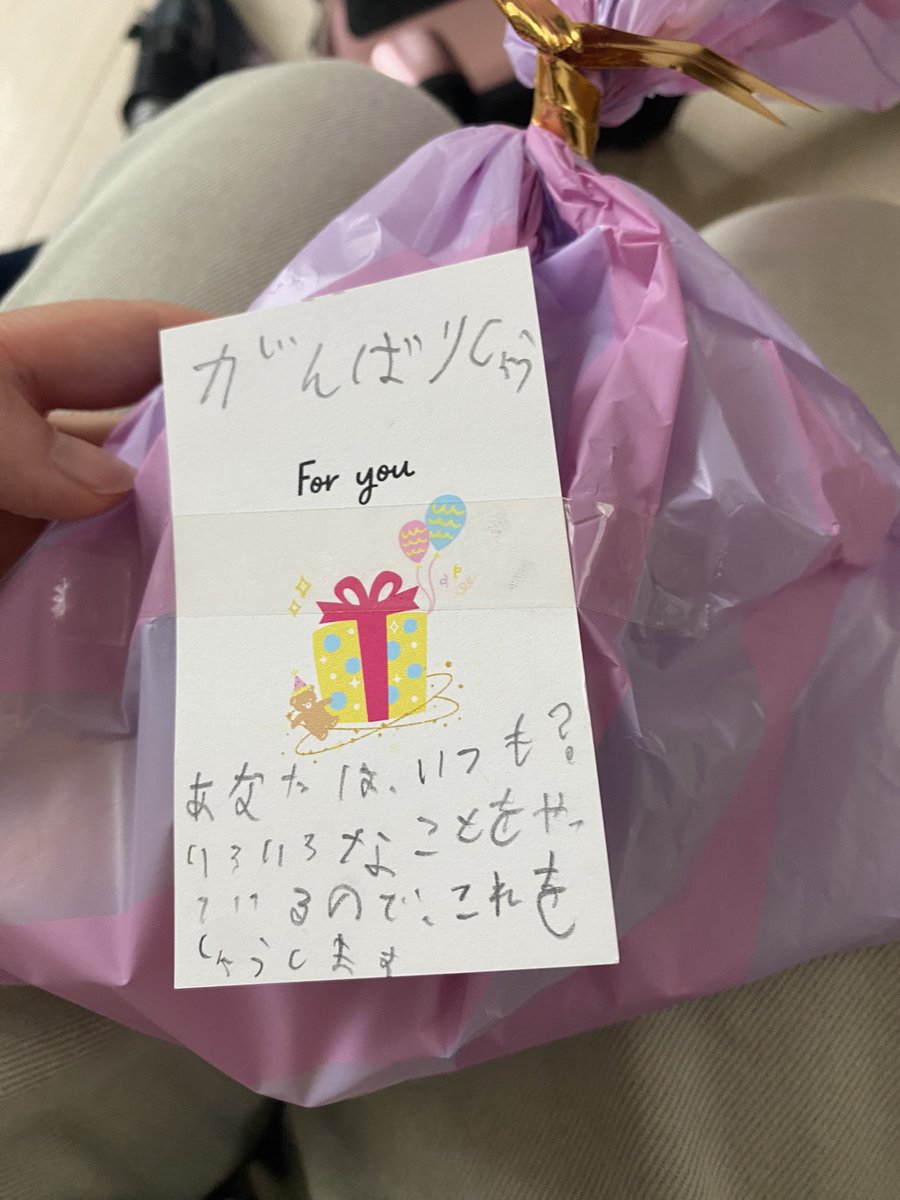 がんばりしょう
For you
あなたは、いつも?
いろいろなことをやっ
ているので、これを
しょうします